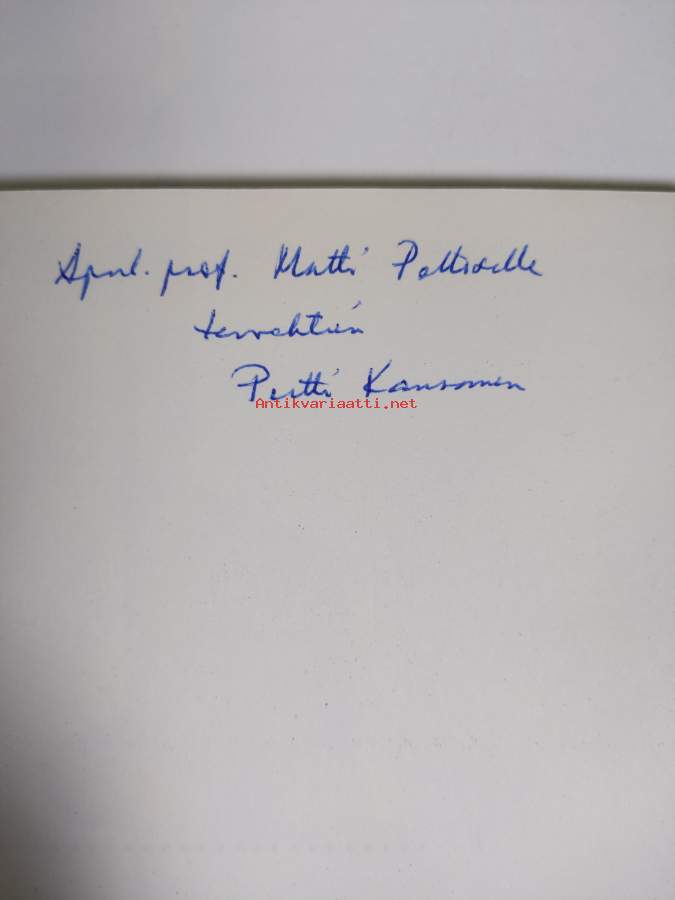 Apul. prof. Matti Peltoselle
tervehtien
Pertti Kansonen
Antikvariaatti.net